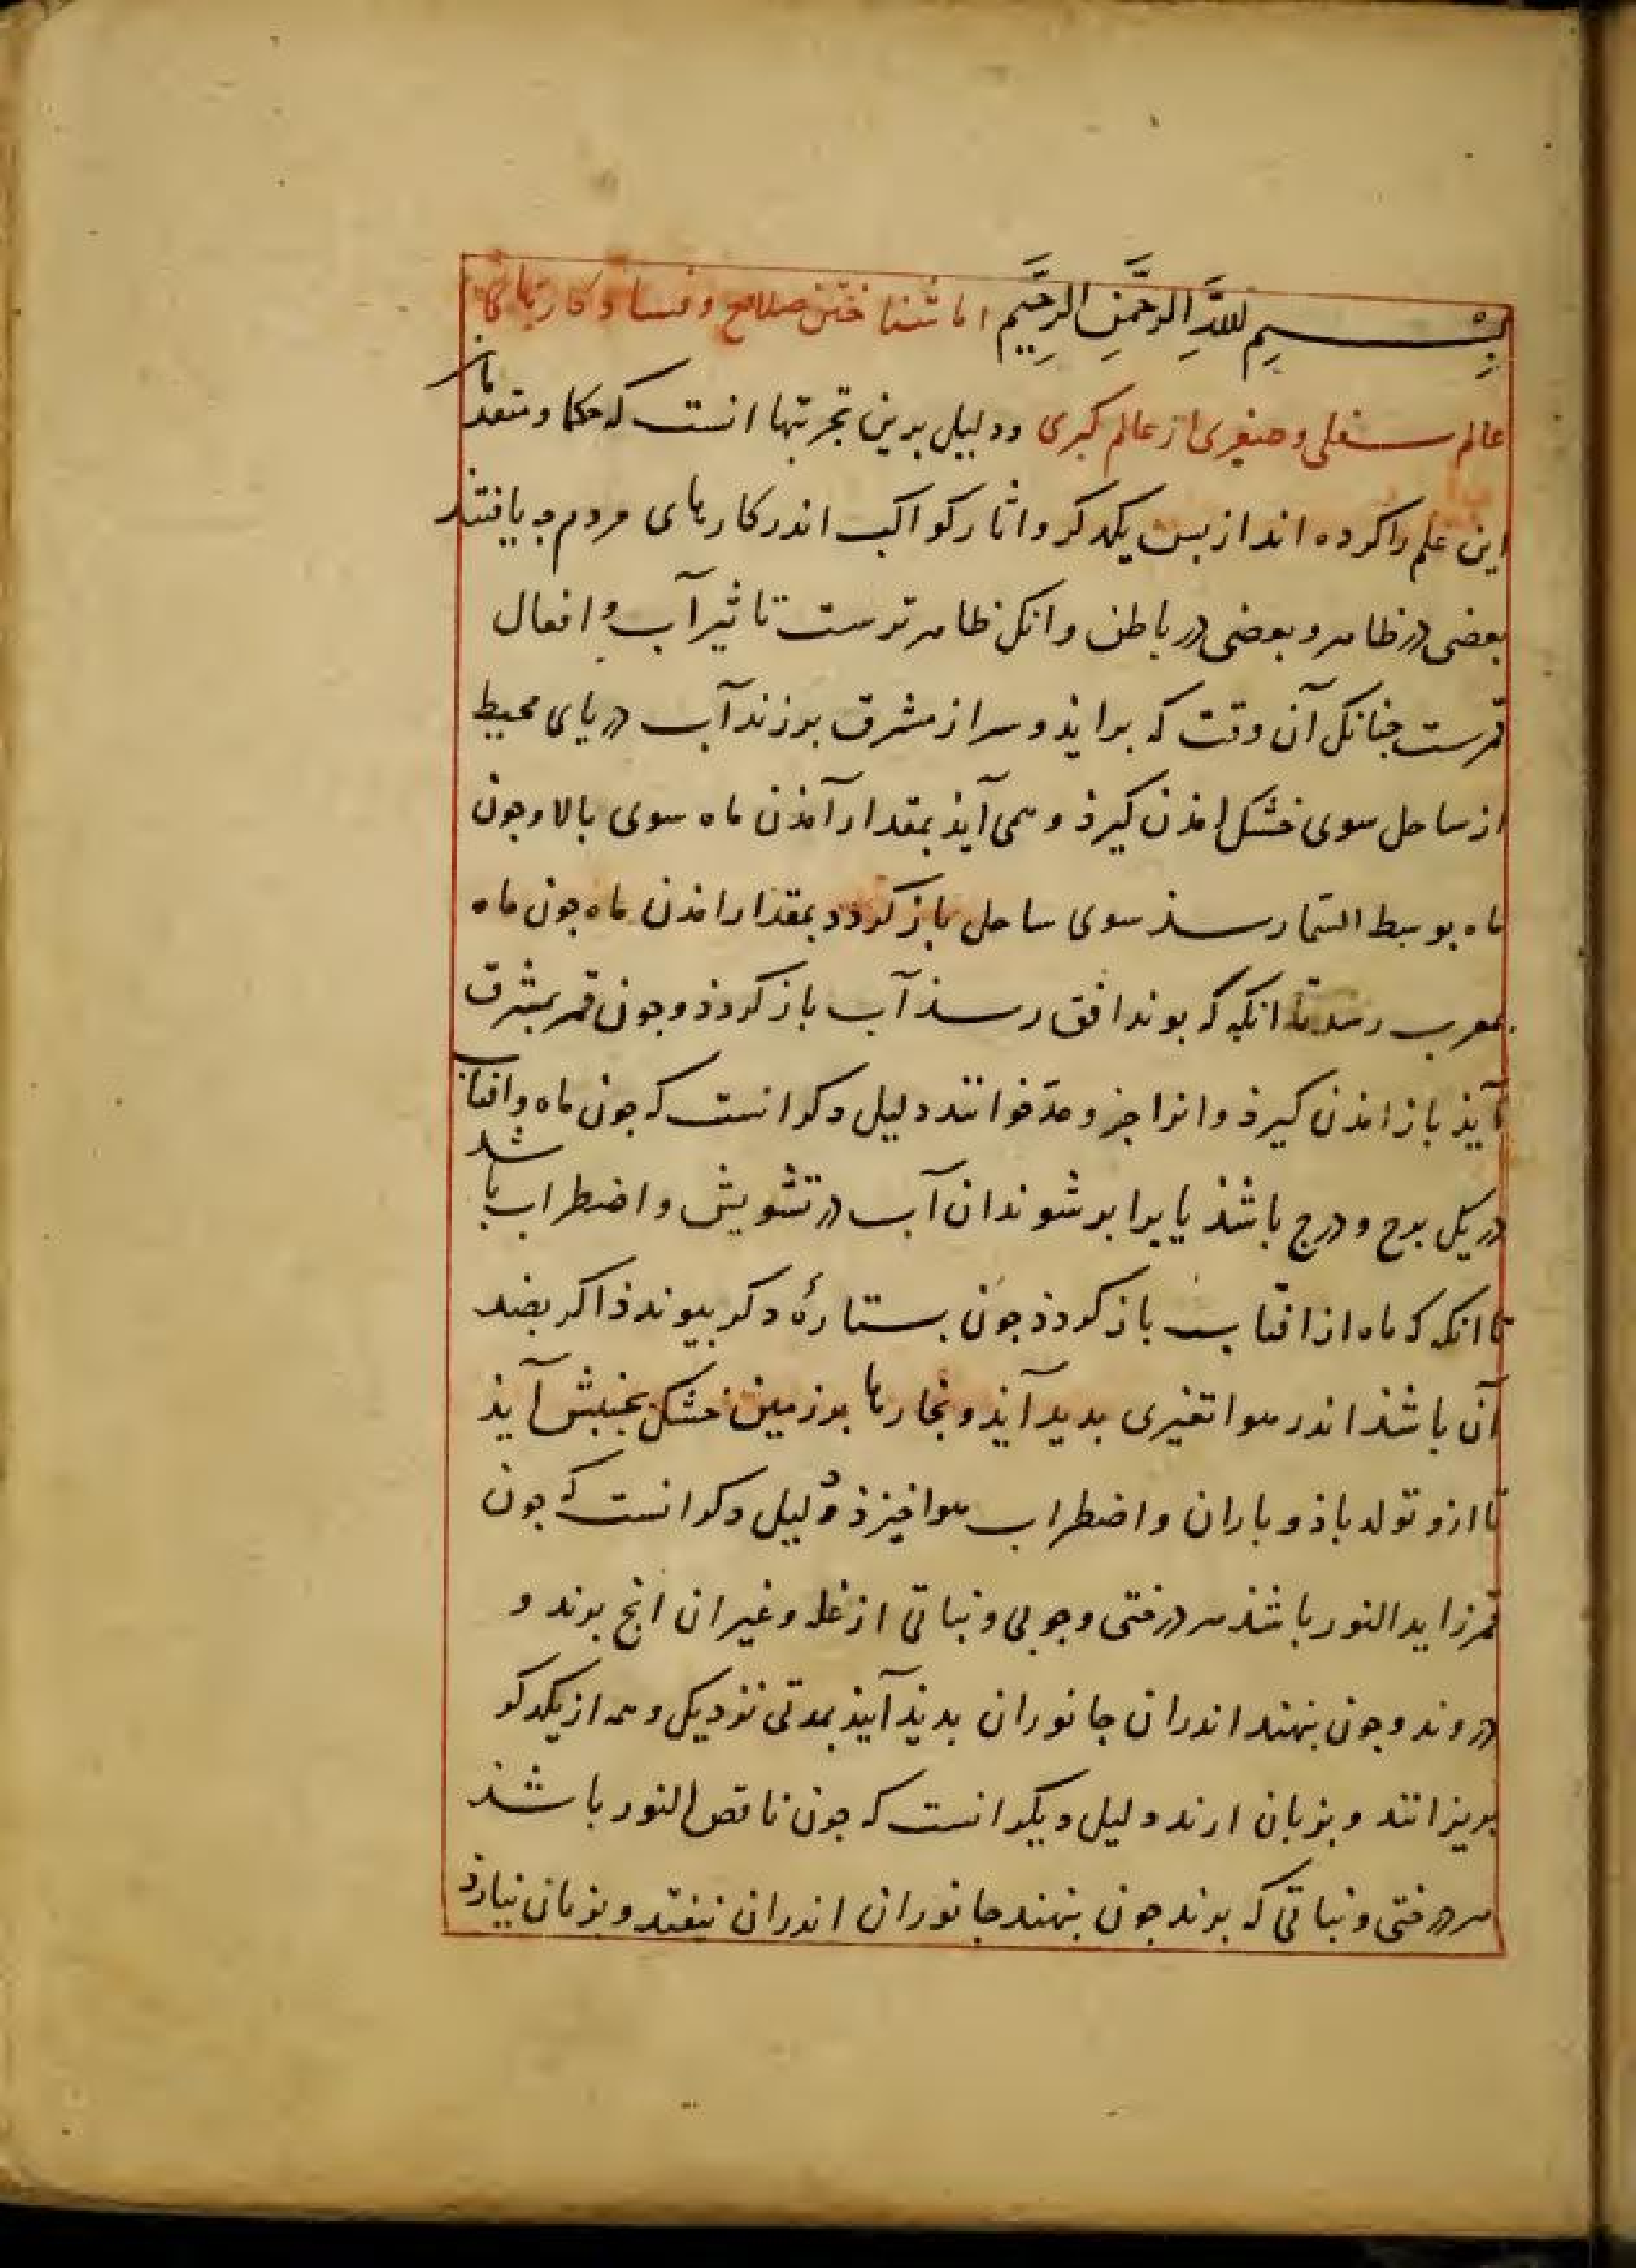 بسم الله الرحمن الرحیم اما شناختن صلاح و فساد و کارهای
عالم سفلی و صغری از عالم کبری و دلیل برین تجربتها انست که حکما و متقدمان
این علم را کرده اند از بس یکدکر و اثار کواکب اندر کارهای مردم بیافتند
بعضی در ظاهر و بعضی در باطن و انک ظاهرترست تاثیر آب و افعال
قمرست جنانک آن وقت که براید و سر از مشرق برزند آب دریای محیط
از ساحل سوی خشک امذن کیرذ و همی آیذ بمقدار آمذن ماه سوی بالا وجون
ماه بوسط السما رسذ سوی ساحل باز کردد بمقدار امذن ماه جون ماه
بمغرب رسد تا انکه که بوند افق رسذ آب باز کردذ وجون قمر بمشرق
آیذ باز امذن کیرذ وانرا جزر و مد خوانند دلیل دکر انست که جون ماه و افتاب
در یک برج و درج باشذ یا برابر شوند ان آب در تشویش و اضطراب باشد
تا انکه که ماه از افتاب باز کردذ جون بستارهٔ دکر بیوندذ اکر بضد
آن باشذ اندر هوا تغیری بدید آیذ و بخارها بر زمین خشک بجنبش آیذ
تا ازو تولد باذ و باران و اضطراب هوا خیزذ و دلیل دکر انست که جون
قمر زاید النور باشذ هر درختی و جوبی و نباتی از غله و غیر ان انج برند و
دروند و جون بنهند اندران جانوران بدیذ آیند بمدتی نزدیک و همه از یکدکر
بریزانند و بزیان ارند دلیل دیکر انست که جون ناقص النور باشذ
هر درختی و نباتی که برند جون بنهند جانوران اندران نیفتد و بزیان نیارذ